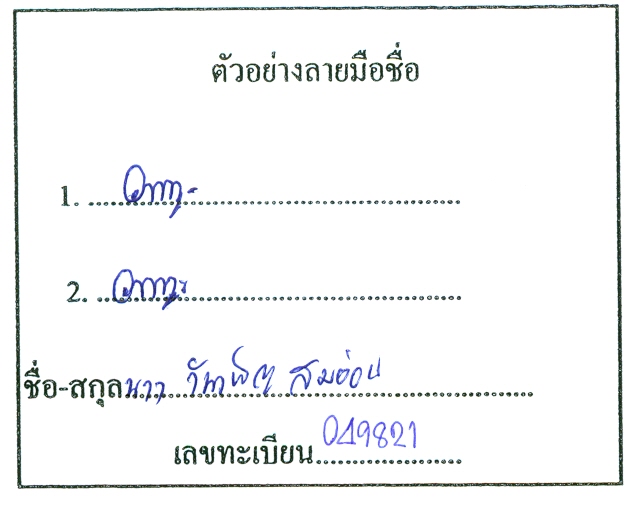 ตัวอย่างลายมือชื่อ
1. ....................
2. ....................
ชื่อ-สกุล นาง วันเพ็ญ สมอ่อน
เลขทะเบียน 049821